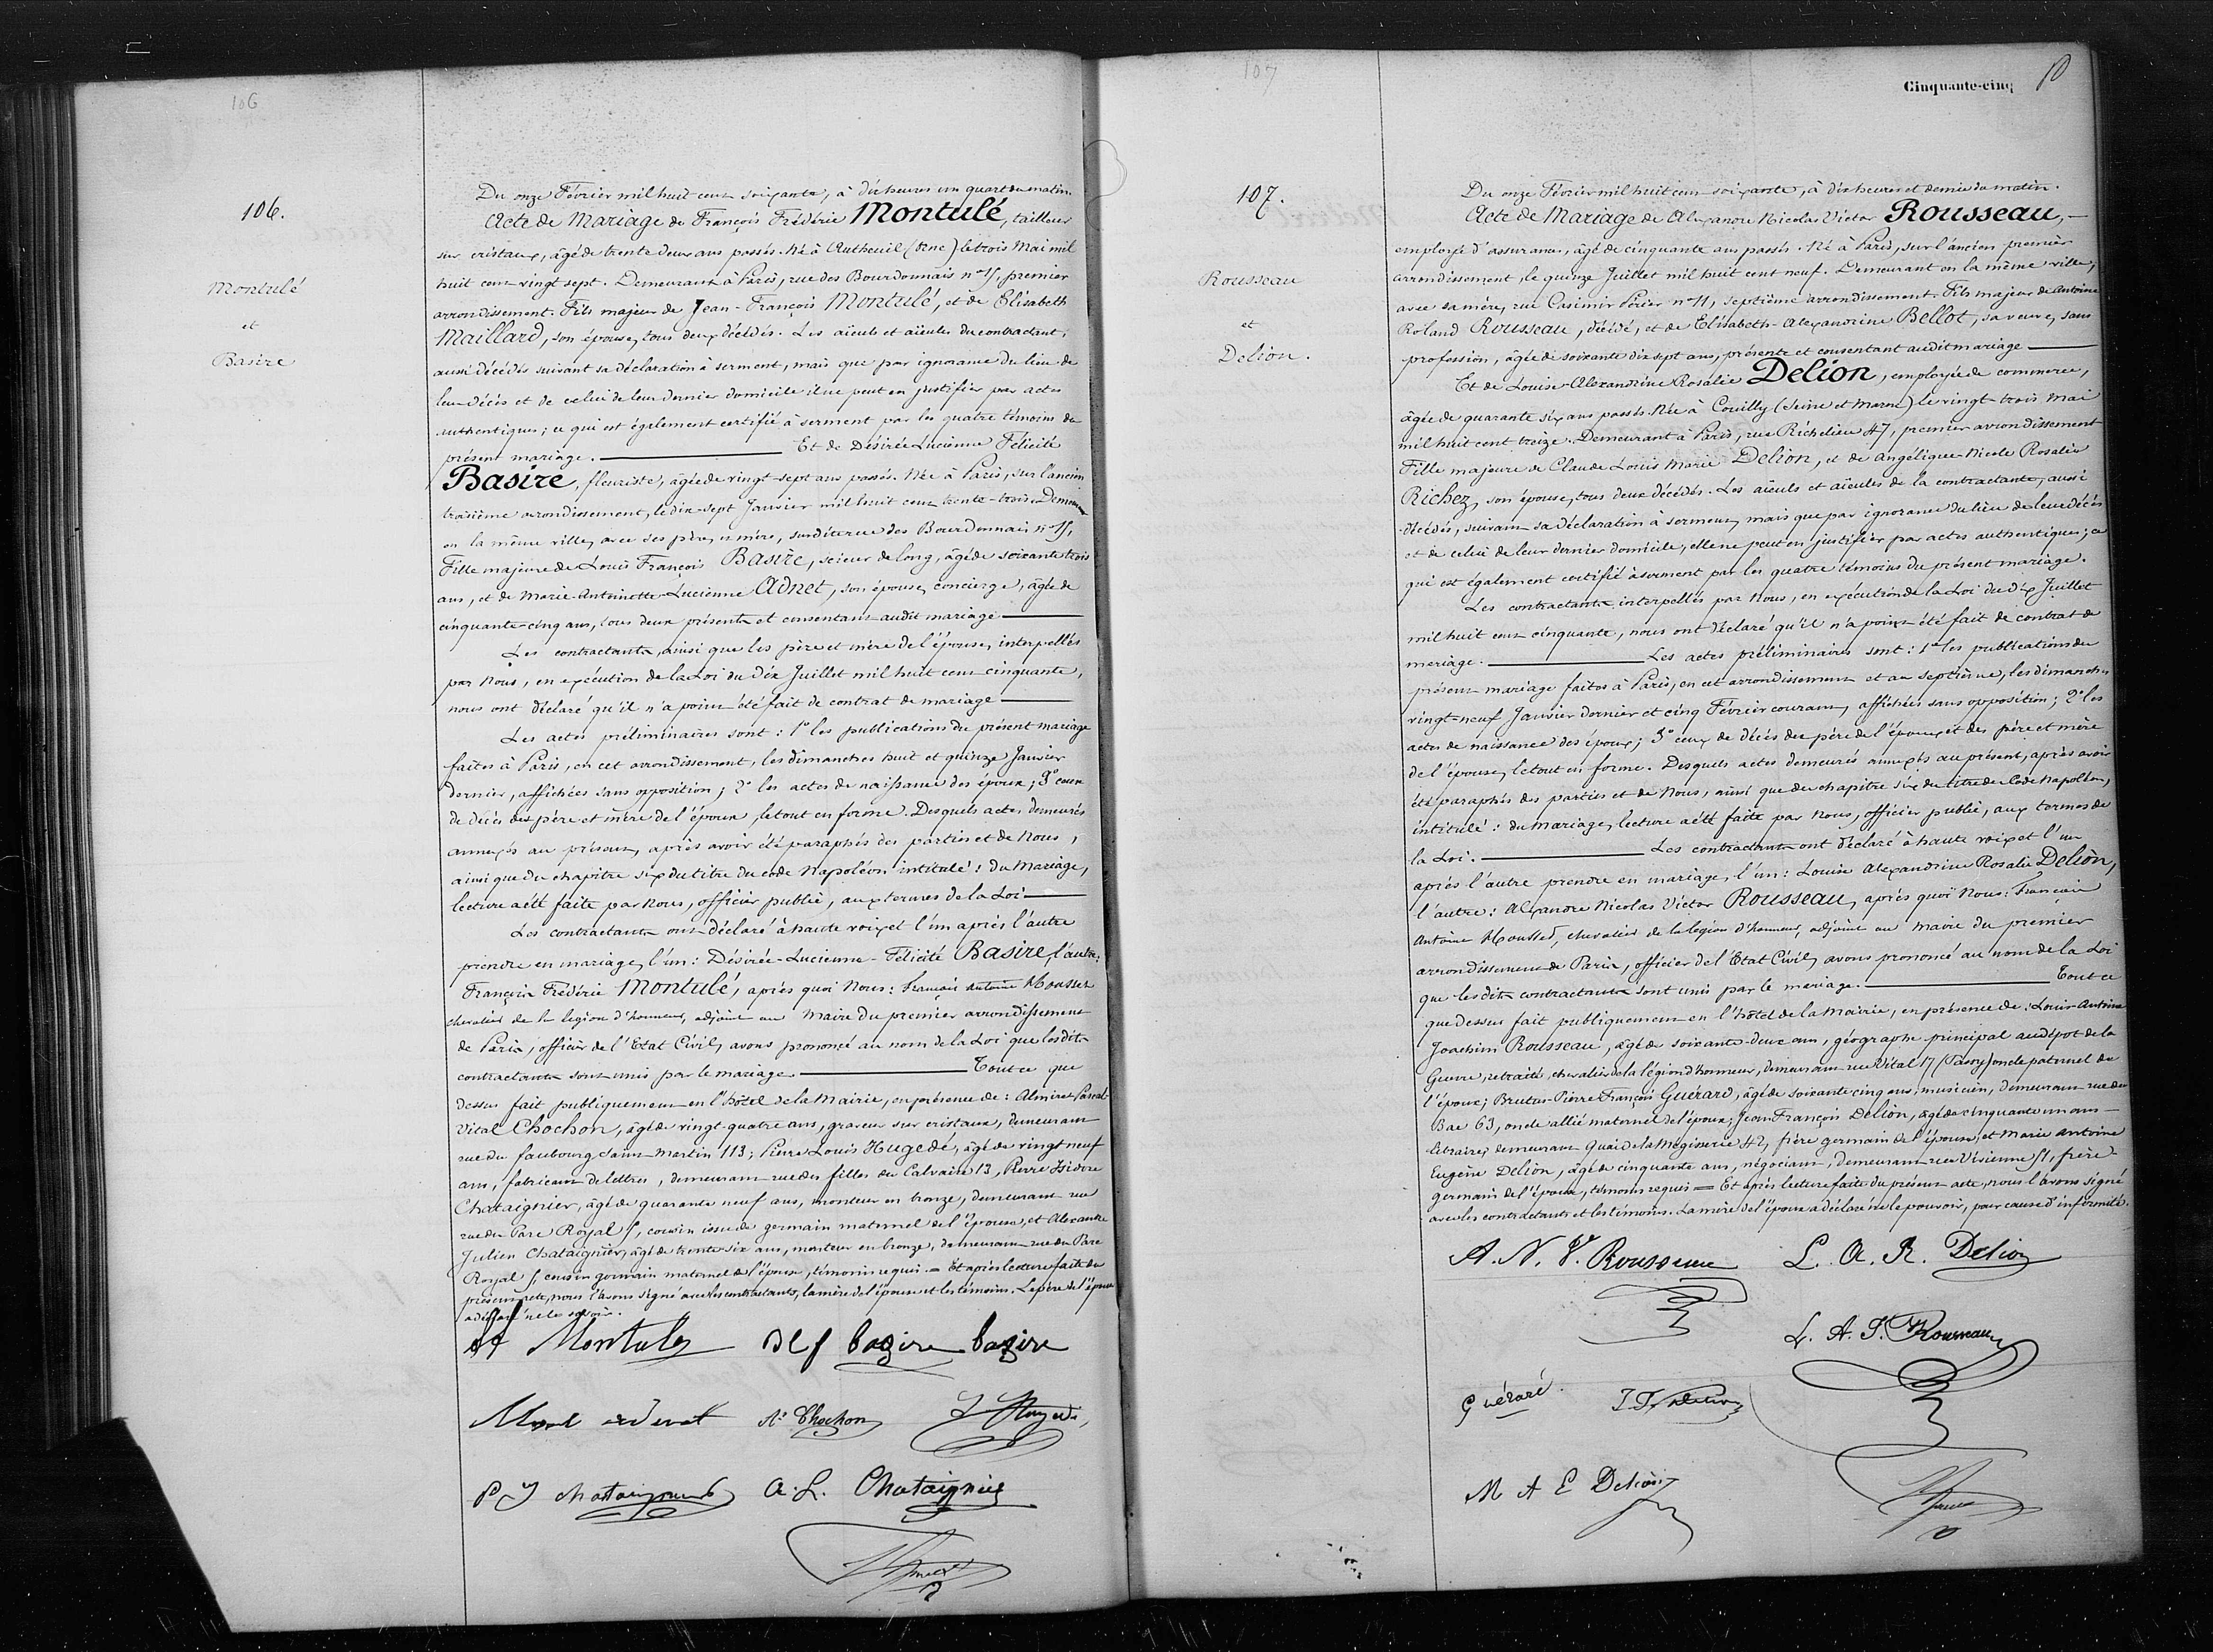 106
106.
Montulé
et
Basire
Du onze Février mil huit cent soixante, à dix heures un quart du matin.
Acte de Mariage de François Frédéric Montulé, tailleur
sur cristaux, âgé de trente deux ans passés. Né à Autheuil (Orne) le trois Mai mil
huit cent vingt sept. Demeurant à Paris, rue des Bourdonnais n° 15, premier
arrondissement. Fils majeur de Jean-François Montulé, et de Elisabeth
Maillard, son épouse, tous deux décédés. Les aïeuls et aïeules du contractant,
aussi décédés suivant sa déclaration à serment, mais que par ignorance du lieu de
leur décès et de celui de leur dernier domicile il ne peut en justifier par actes
authentiques; ce qui est également certifié à serment par les quatre témoins du
présent mariage. — Et de Désirée Lucienne Félicité
Basire, fleuriste, âgée de vingt-sept ans passés. Née à Paris, sur l'ancien
troisième arrondissement, le dix-sept Janvier mil huit cent trente-trois. Demeurant
en la même ville, avec ses père et mère, susdite rue des Bourdonnais n° 15,
Fille majeure de Louis François Basire, scieur de long, âgé de soixante trois
ans, et de Marie-Antoinette-Lucienne Adnet, son épouse, concierge, âgée de
cinquante-cinq ans, tous deux présents et consentans audit mariage —
Les contractants, ainsi que les père et mère de l'épouse, interpellés
par Nous, en exécution de la Loi du dix Juillet mil huit cent cinquante,
nous ont déclaré qu'il n'a point été fait de contrat de mariage —
Les actes préliminaires sont: 1° les publications du présent mariage
faites à Paris, en cet arrondissement, les dimanches huit et quinze Janvier
dernier, affichées sans opposition; 2° les actes de naissance des époux; 3° ceux
de décès des père et mère de l'époux, le tout en forme. Desquels actes, demeurés
annexés au présent, après avoir été paraphés des parties et de Nous,
ainsi que du chapitre six du titre du code Napoléon intitulé: du Mariage,
lecture a été faite par Nous, officier public, aux termes de la Loi —
Les contractants ont déclaré à haute voix et l'un après l'autre
prendre en mariage, l'un: Désirée-Lucienne-Félicité Basire, l'autre:
François Frédéric Montulé, après quoi Nous: François Antoine Housset
chevalier de la légion d'honneur, adjoint au Maire du premier arrondissement
de Paris, officier de l'Etat Civil, avons prononcé au nom de la Loi que lesdits
contractants sont unis par le mariage. — Tout ce que
dessus fait publiquement en l'hôtel de la Mairie, en présence de: Almire Pascal
Vital Chochon, âgé de vingt-quatre ans, graveur sur cristaux, demeurant
rue du faubourg Saint-Martin 113; Pierre Louis Hugedé, âgé de vingt neuf
ans, fabricant de lettres, demeurant rue des filles du Calvaire 13, Pierre Isidore
Chataignier, âgé de quarante neuf ans, monteur en bronze, demeurant rue
rue du Parc Royal 5, cousin issu de germain maternel de l'épouse, et Alexandre
Julien Chataignier, âgé de trente six ans, monteur en bronze, demeurant rue du Parc
Royal 5, cousin germain maternel de l'épouse, témoins requis. = Et après lecture faite du
présent acte, nous l'avons signé avec les contractants, la mère de l'épouse et les témoins. Le père de l'épouse
a déclaré ne le savoir.
Montulé DLf bazire bazire
At Chochon L Hugedé
P J Chataignier A. L. Chataignier
107
107.
Rousseau
et
Delion.
Cinquante-cinq
Du onze Février mil huit cent soixante, à dix heures et demie du matin.
Acte de Mariage de Alexandre Nicolas Victor Rousseau, —
employé d'assurances, âgé de cinquante ans passés. Né à Paris, sur l'ancien premier
arrondissement, le quinze Juillet mil huit cent neuf. Demeurant en la même ville,
avec sa mère, rue Casimir Périer n° 11, septième arrondissement. Fils majeur de Antoine
Roland Rousseau, décédé, et de Elisabeth-Alexandrine Bellot, sa veuve, sans
profession, âgée de soixante dix sept ans, présente et consentant audit mariage —
Et de Louise-Alexandrine Rosalie Delion, employée de commerce,
âgée de quarante six ans passés. Née à Couilly (Seine et Marne) le vingt-trois Mai
mil huit cent treize. Demeurant à Paris, rue Richelieu 47, premier arrondissement
Fille majeure de Claude Louis Marie Delion, et de Angélique Nicole Rosalie
Richez, son épouse, tous deux décédés. Les aïeuls et aïeules de la contractante, aussi
décédés, suivant sa déclaration à serment, mais que par ignorance du lieu de leur décès
et de celui de leur dernier domicile, elle ne peut en justifier par actes authentiques; ce
qui est également certifié à serment par les quatre témoins du présent mariage.
Les contractants interpellés par Nous, en exécution de la Loi du dix Juillet
mil huit cent cinquante, nous ont déclaré qu'il n'a point été fait de contrat de
mariage. — Les actes préliminaires sont: 1° les publications du
présent mariage faites à Paris, en cet arrondissement et au septième, les dimanches
vingt-neuf Janvier dernier et cinq Février courant, affichées sans opposition; 2° les
actes de naissance des époux; 3° ceux de décès du père de l'époux et des père et mère
de l'épouse, le tout en forme. Desquels actes demeurés annexés au présent, après avoir
été paraphés des parties et de Nous, ainsi que du chapitre six du titre du Code Napoléon,
intitulé: du Mariage, lecture a été faite par Nous, officier public, aux termes de
la Loi. — Les contractants ont déclaré à haute voix et l'un
après l'autre prendre en mariage, l'un: Louise Alexandrine Rosalie Delion,
l'autre: Alexandre Nicolas Victor Rousseau, après quoi Nous: François
Antoine Housset, chevalier de la légion d'honneur, adjoint au Maire du premier
arrondissement de Paris, officier de l'Etat Civil, avons prononcé au nom de la Loi
que lesdits contractants sont unis par le mariage. — Tout ce
que dessus fait publiquement en l'hôtel de la Mairie, en présence de: Louis-Antoine
Joachim Rousseau, âgé de soixante-deux ans, géographe principal au dépôt de la
Guerre, retraité, chevalier de la légion d'honneur, demeurant rue Vital 17 (Passy) oncle paternel de
l'époux; Brutus-Pierre François Guérard, âgé de soixante cinq ans, musicien, demeurant rue du
Bac 63, oncle allié maternel de l'époux; Jean François Delion, âgé de cinquante un ans —
Libraire, demeurant Quai de la Mégisserie 42, frère germain de l'épouse; et Marie Antoine
Eugène Delion, âgé de cinquante ans, négociant, demeurant rue Vivienne 51, frère
germain de l'épouse, témoins requis = Et après lecture faite du présent acte, nous l'avons signé
avec les contractants et les témoins. La mère de l'époux a déclaré ne le pouvoir, pour cause d'infirmité.
A. N. V. Rousseau L. A. R. Delion
L. A. J. Rousseau
Guérard J. F. Delion
M A E Delion